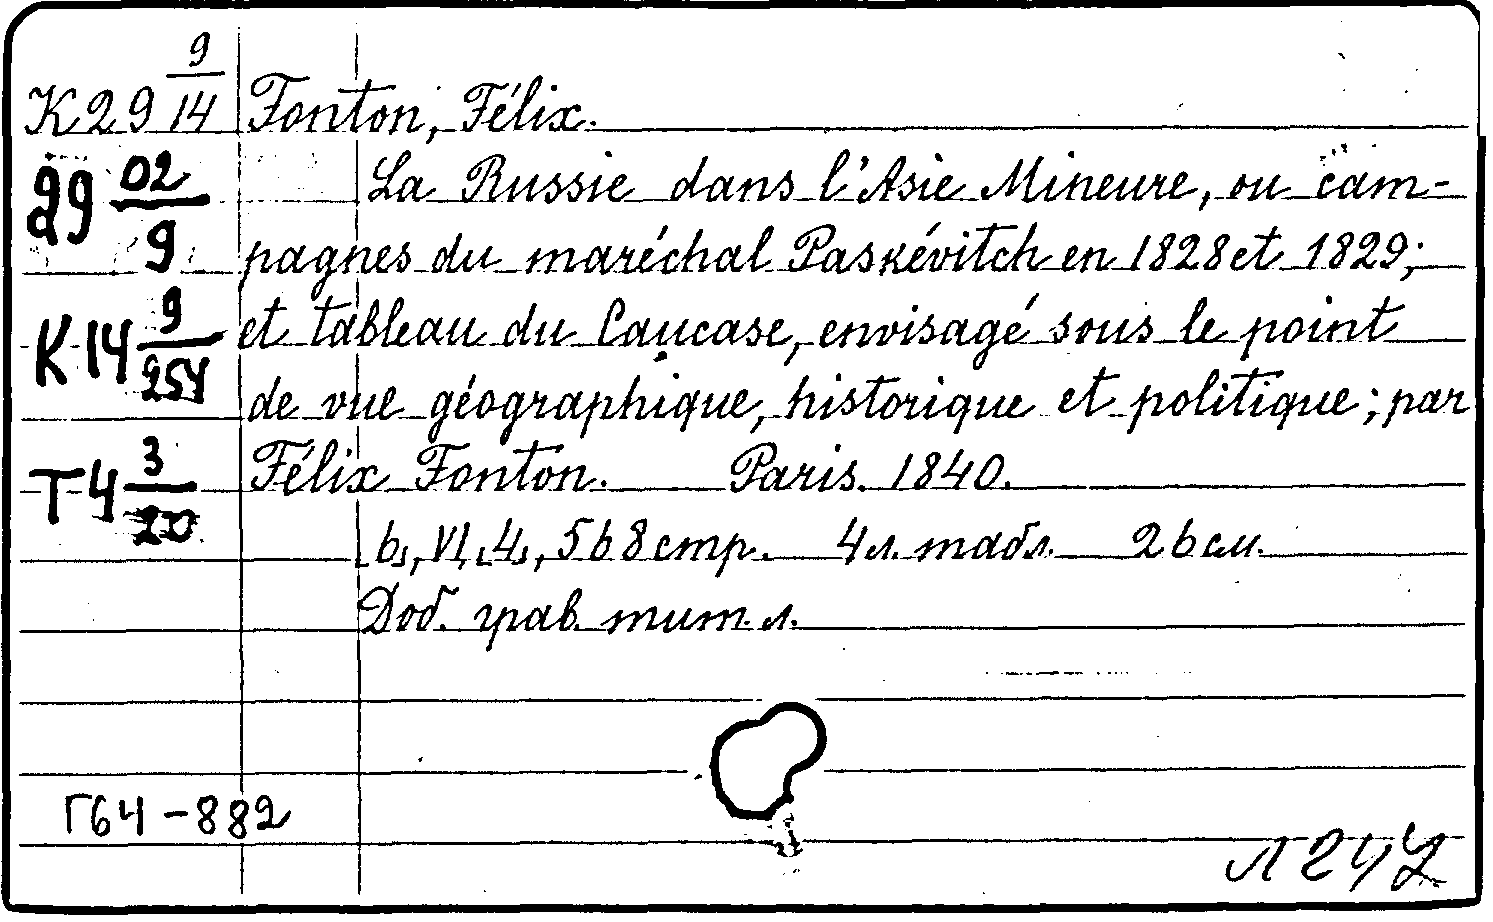 К29 9/14 Fonton, Félix.
99 02/9 La Russie dans l'Asie Mineure, ou cam-
pagnes du maréchal Paskévitch en 1828 et 1829;
К14 9/254 et tableau du Caucase, envisagé sous le point
de vue géographique, historique et politique; par
Т4 3/20 Félix Fonton. Paris. 1840.
[6], VI, [4], 568 стр. 4 л. табл. 26 см.
Доб. грав. тит. л.
Г64-882